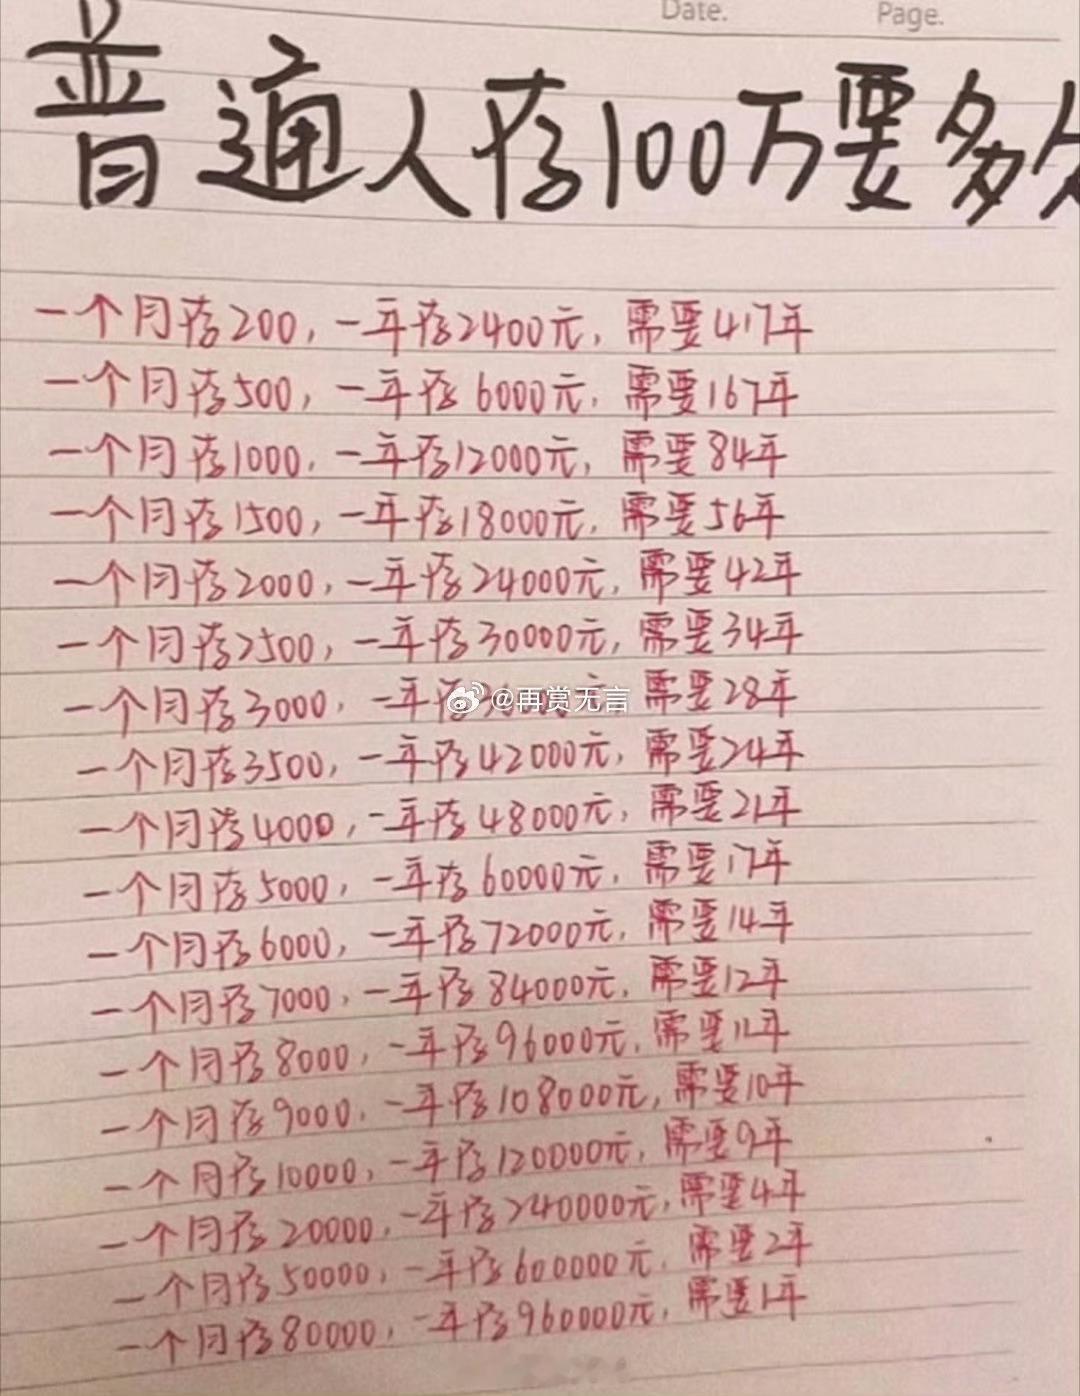 Date. Page.
普通人存100万要多
一个月存200，一年存2400元，需要417年
一个月存500，一年存6000元，需要167年
一个月存1000，一年存12000元，需要84年
一个月存1500，一年存18000元，需要56年
一个月存2000，一年存24000元，需要42年
一个月存2500，一年存30000元，需要34年
一个月存3000，一年存元，需要28年
@再赏无言
一个月存3500，一年存42000元，需要24年
一个月存4000，一年存48000元，需要21年
一个月存5000，一年存60000元，需要17年
一个月存6000，一年存72000元，需要14年
一个月存7000，一年存84000元，需要12年
一个月存8000，一年存96000元，需要11年
一个月存9000，一年存108000元，需要10年
一个月存10000，一年存120000元，需要9年
一个月存20000，一年存240000元，需要4年
一个月存50000，一年存600000元，需要2年
一个月存80000，一年存960000元，需要1年